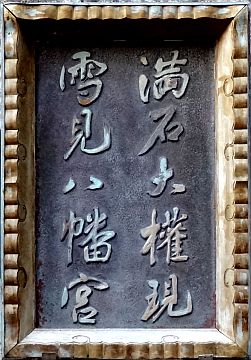 満石大權現
雪見八幡宮